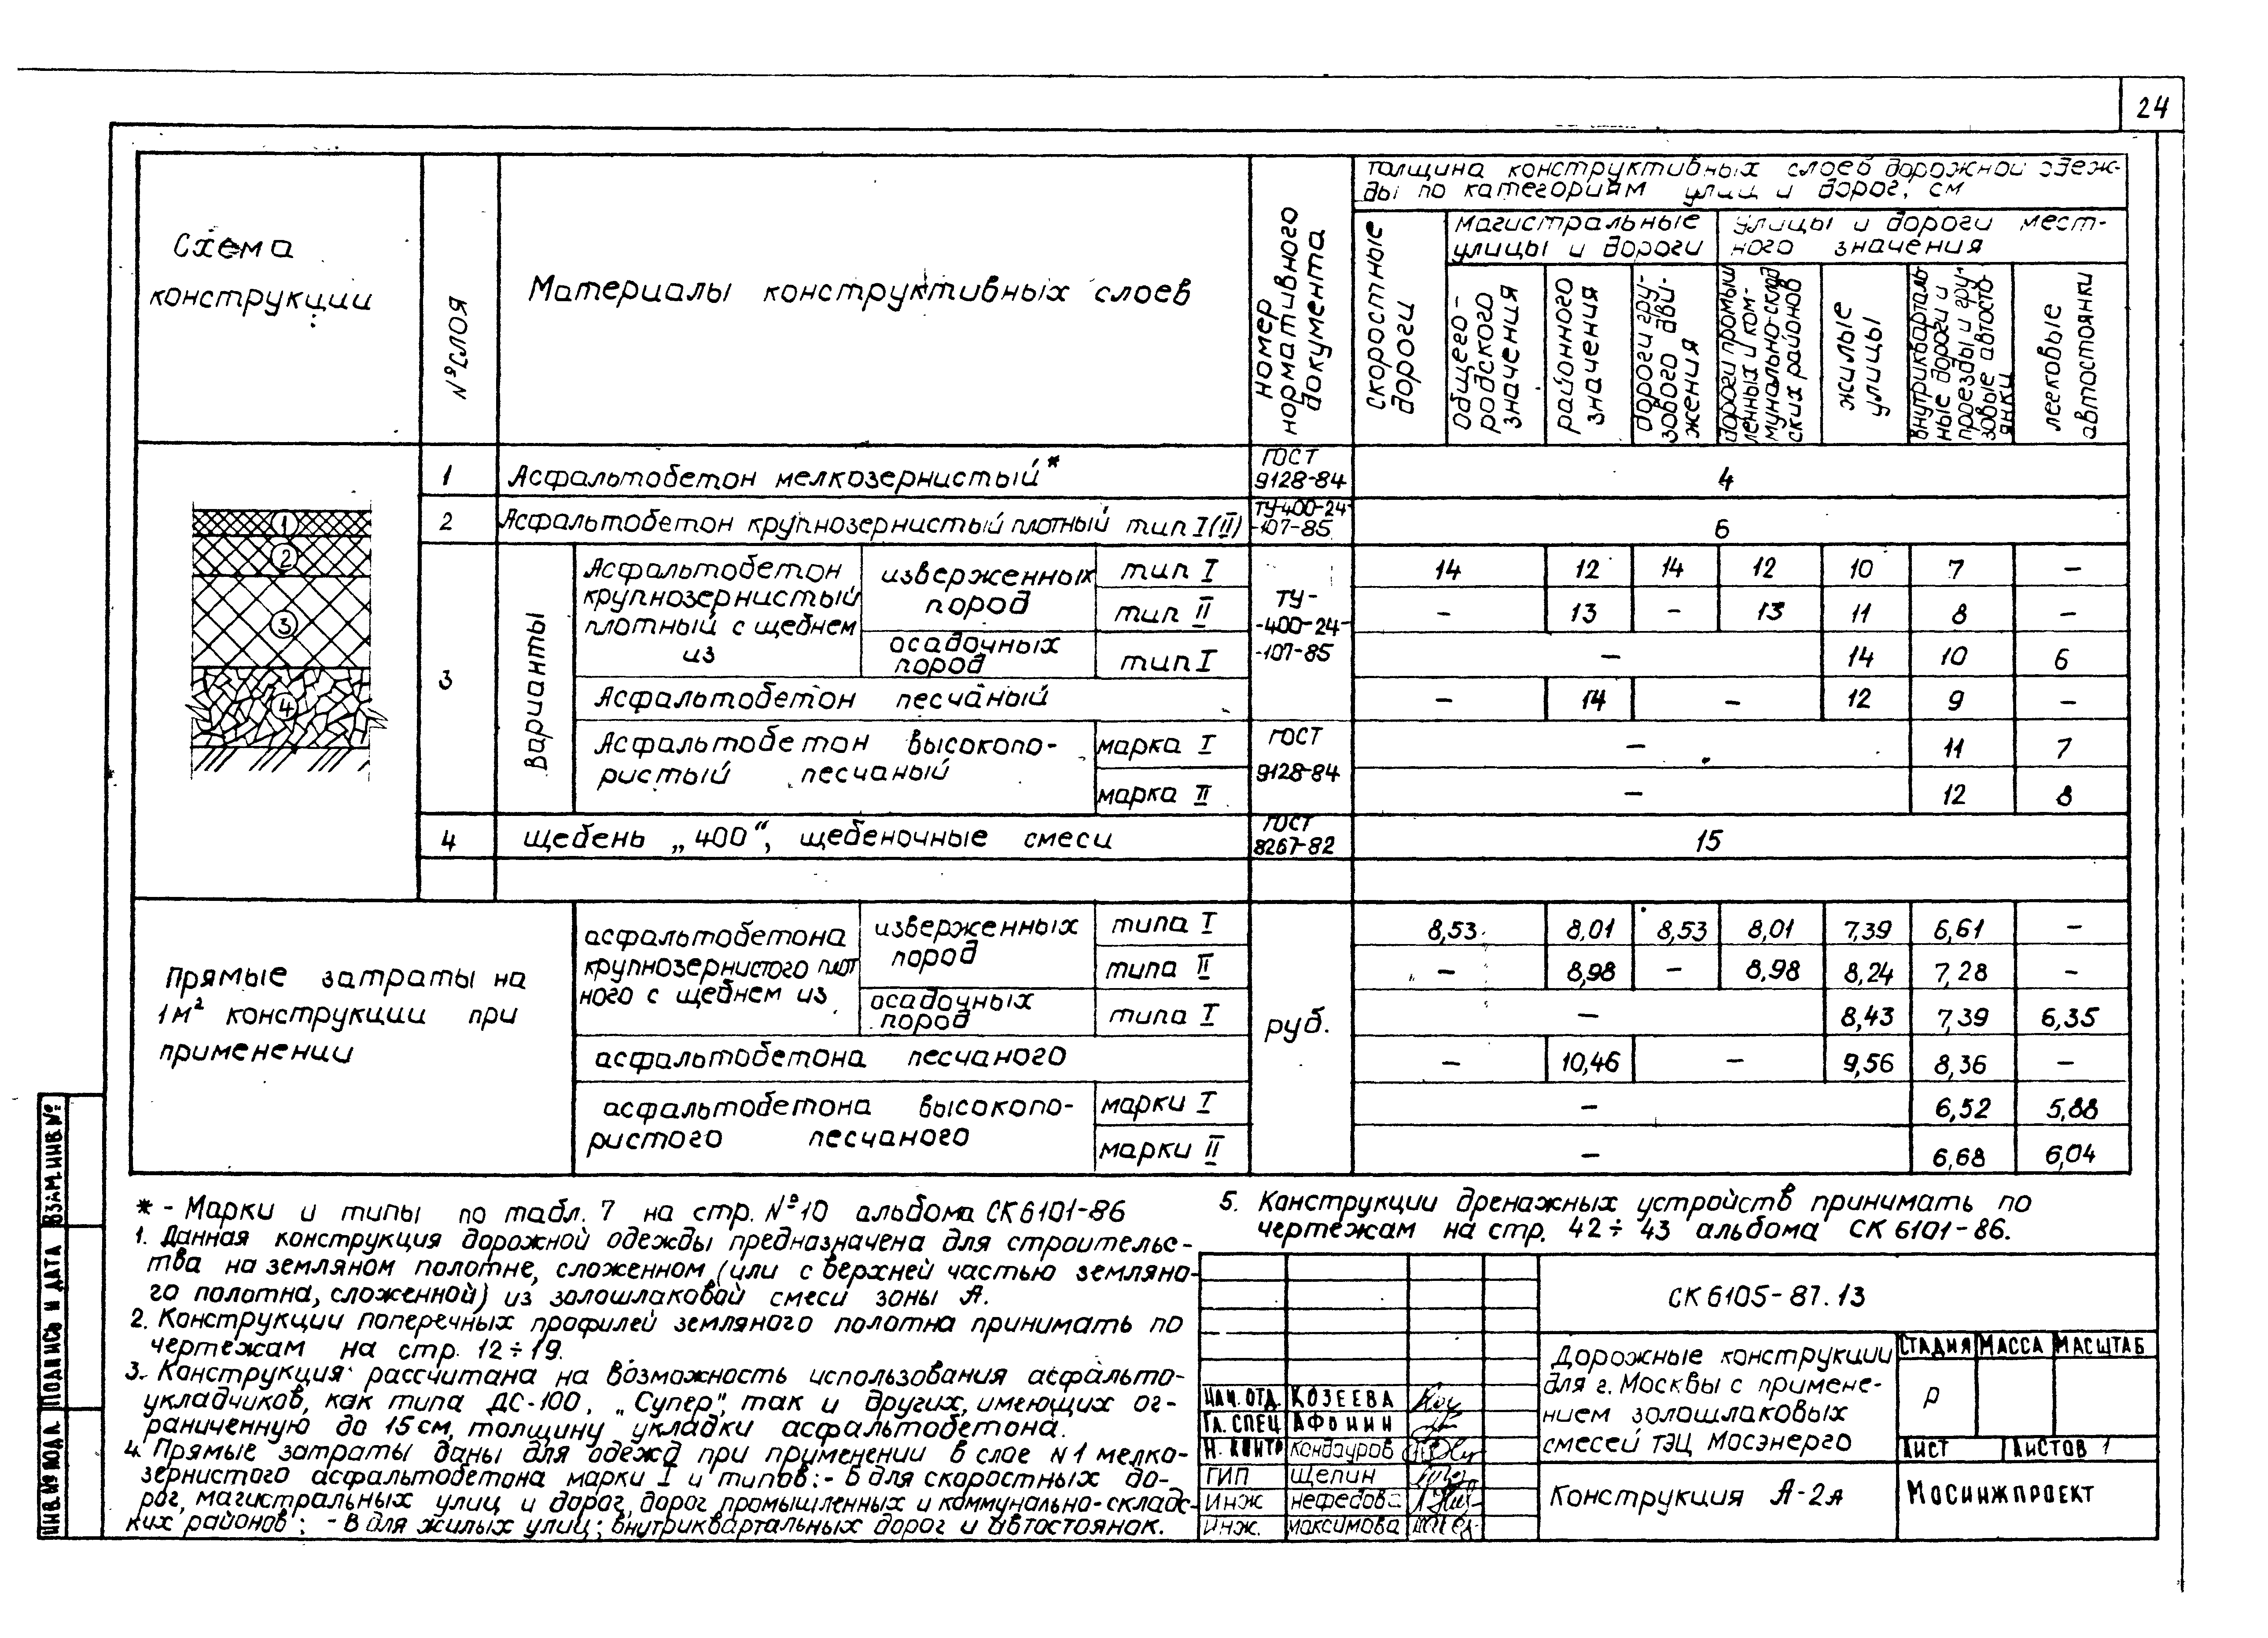 24
Схема
конструкции
№ слоя
Материалы конструктивных слоев
Номер
нормативного
документа
Толщина конструктивных слоев дорожной одеж-
ды по категориям улиц и дорог, см
Скоростные
дороги
Магистральные
улицы и дороги
Улицы и дороги мест-
ного значения
общего-
родского
значения
районного
значения
дороги гру-
зового дви-
жения
дороги промыш
ленных и ком-
мунально-склад
ских районов
жилые
улицы
внутрикварталь
ные дороги и
проезды и гру-
зовые автосто-
янки
легковые
автостоянки
1 Асфальтобетон мелкозернистый* ГОСТ 9128-84 4
2 Асфальтобетон крупнозернистый плотный тип I(II) ТУ400-24-107-85 6
3 Варианты
Асфальтобетон
крупнозернистый
плотный с щебнем
из
изверженных
пород
тип I 14 12 14 12 10 7 –
тип II – 13 – 13 11 8 –
осадочных
пород
тип I – 14 10 6
ТУ-
-400-24-
-107-85
Асфальтобетон песчаный – 14 – 12 9 –
Асфальтобетон высокопо-
ристый песчаный
марка I – 11 7
марка II – 12 8
ГОСТ
9128-84
4 Щебень „400“, щебеночные смеси ГОСТ 8267-82 15
1
2
3
4
Прямые затраты на
1м² конструкции при
применении
асфальтобетона
крупнозернистого плот
ного с щебнем из
изверженных
пород
типа I 8,53 8,01 8,53 8,01 7,39 6,61 –
типа II – 8,98 – 8,98 8,24 7,28 –
осадочных
пород
типа I – 8,43 7,39 6,35
руб.
асфальтобетона песчаного – 10,46 – 9,56 8,36 –
асфальтобетона высокопо-
ристого песчаного
марки I – 6,52 5,88
марки II – 6,68 6,04
* - Марки и типы по табл. 7 на стр. №10 альбома СК6101-86
1. Данная конструкция дорожной одежды предназначена для строительс-
тва на земляном полотне, сложенном (или с верхней частью земляно-
го полотна, сложенной) из золошлаковой смеси зоны А.
2. Конструкции поперечных профилей земляного полотна принимать по
чертежам на стр. 12÷19.
3. Конструкция рассчитана на возможность использования асфальто-
укладчиков, как типа ДС-100, „Супер“, так и других, имеющих ог-
раниченную до 15см, толщину укладки асфальтобетона.
4. Прямые затраты даны для одежд при применении в слое N1 мелко-
зернистого асфальтобетона марки I и типов: - Б для скоростных до-
рог, магистральных улиц и дорог, дорог промышленных и коммунально-складс-
ких районов; - В для жилых улиц; внутриквартальных дорог и автостоянок.
5. Конструкции дренажных устройств принимать по
чертежам на стр. 42÷43 альбома СК 6101-86.
СК 6105-87.13
Дорожные конструкции
для г. Москвы с примене-
нием золошлаковых
смесей ТЭЦ Мосэнерго
Стадия Масса Масштаб
Р
Лист Листов 1
Конструкция А-2я
Мосинжпроект
Нач. отд. Козеева
Гл. спец Афонин
Н. контр Кондауров
ГИП Щепин
Инж Нефедова
Инж. Максимова
Взам. инв. №
Подпись и дата
Инв. № подл.